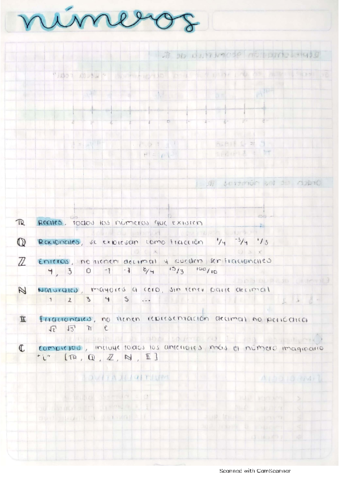 números
ℝ Reales, todos los números que existen
ℚ Racionales, se expresan como fracción 1/4 3/4 1/3
ℤ Enteros, no tienen decimal y pueden ser fraccionales
4, 3 0 -1 15/3 100/10
ℕ Naturales, mayores a cero, sin tener parte decimal
1 2 3 4 5 ...
Irracionales, no tienen representación decimal no periódica
ℂ Complejos, incluye todos los anteriores más el número imaginario
Scanned with CamScanner